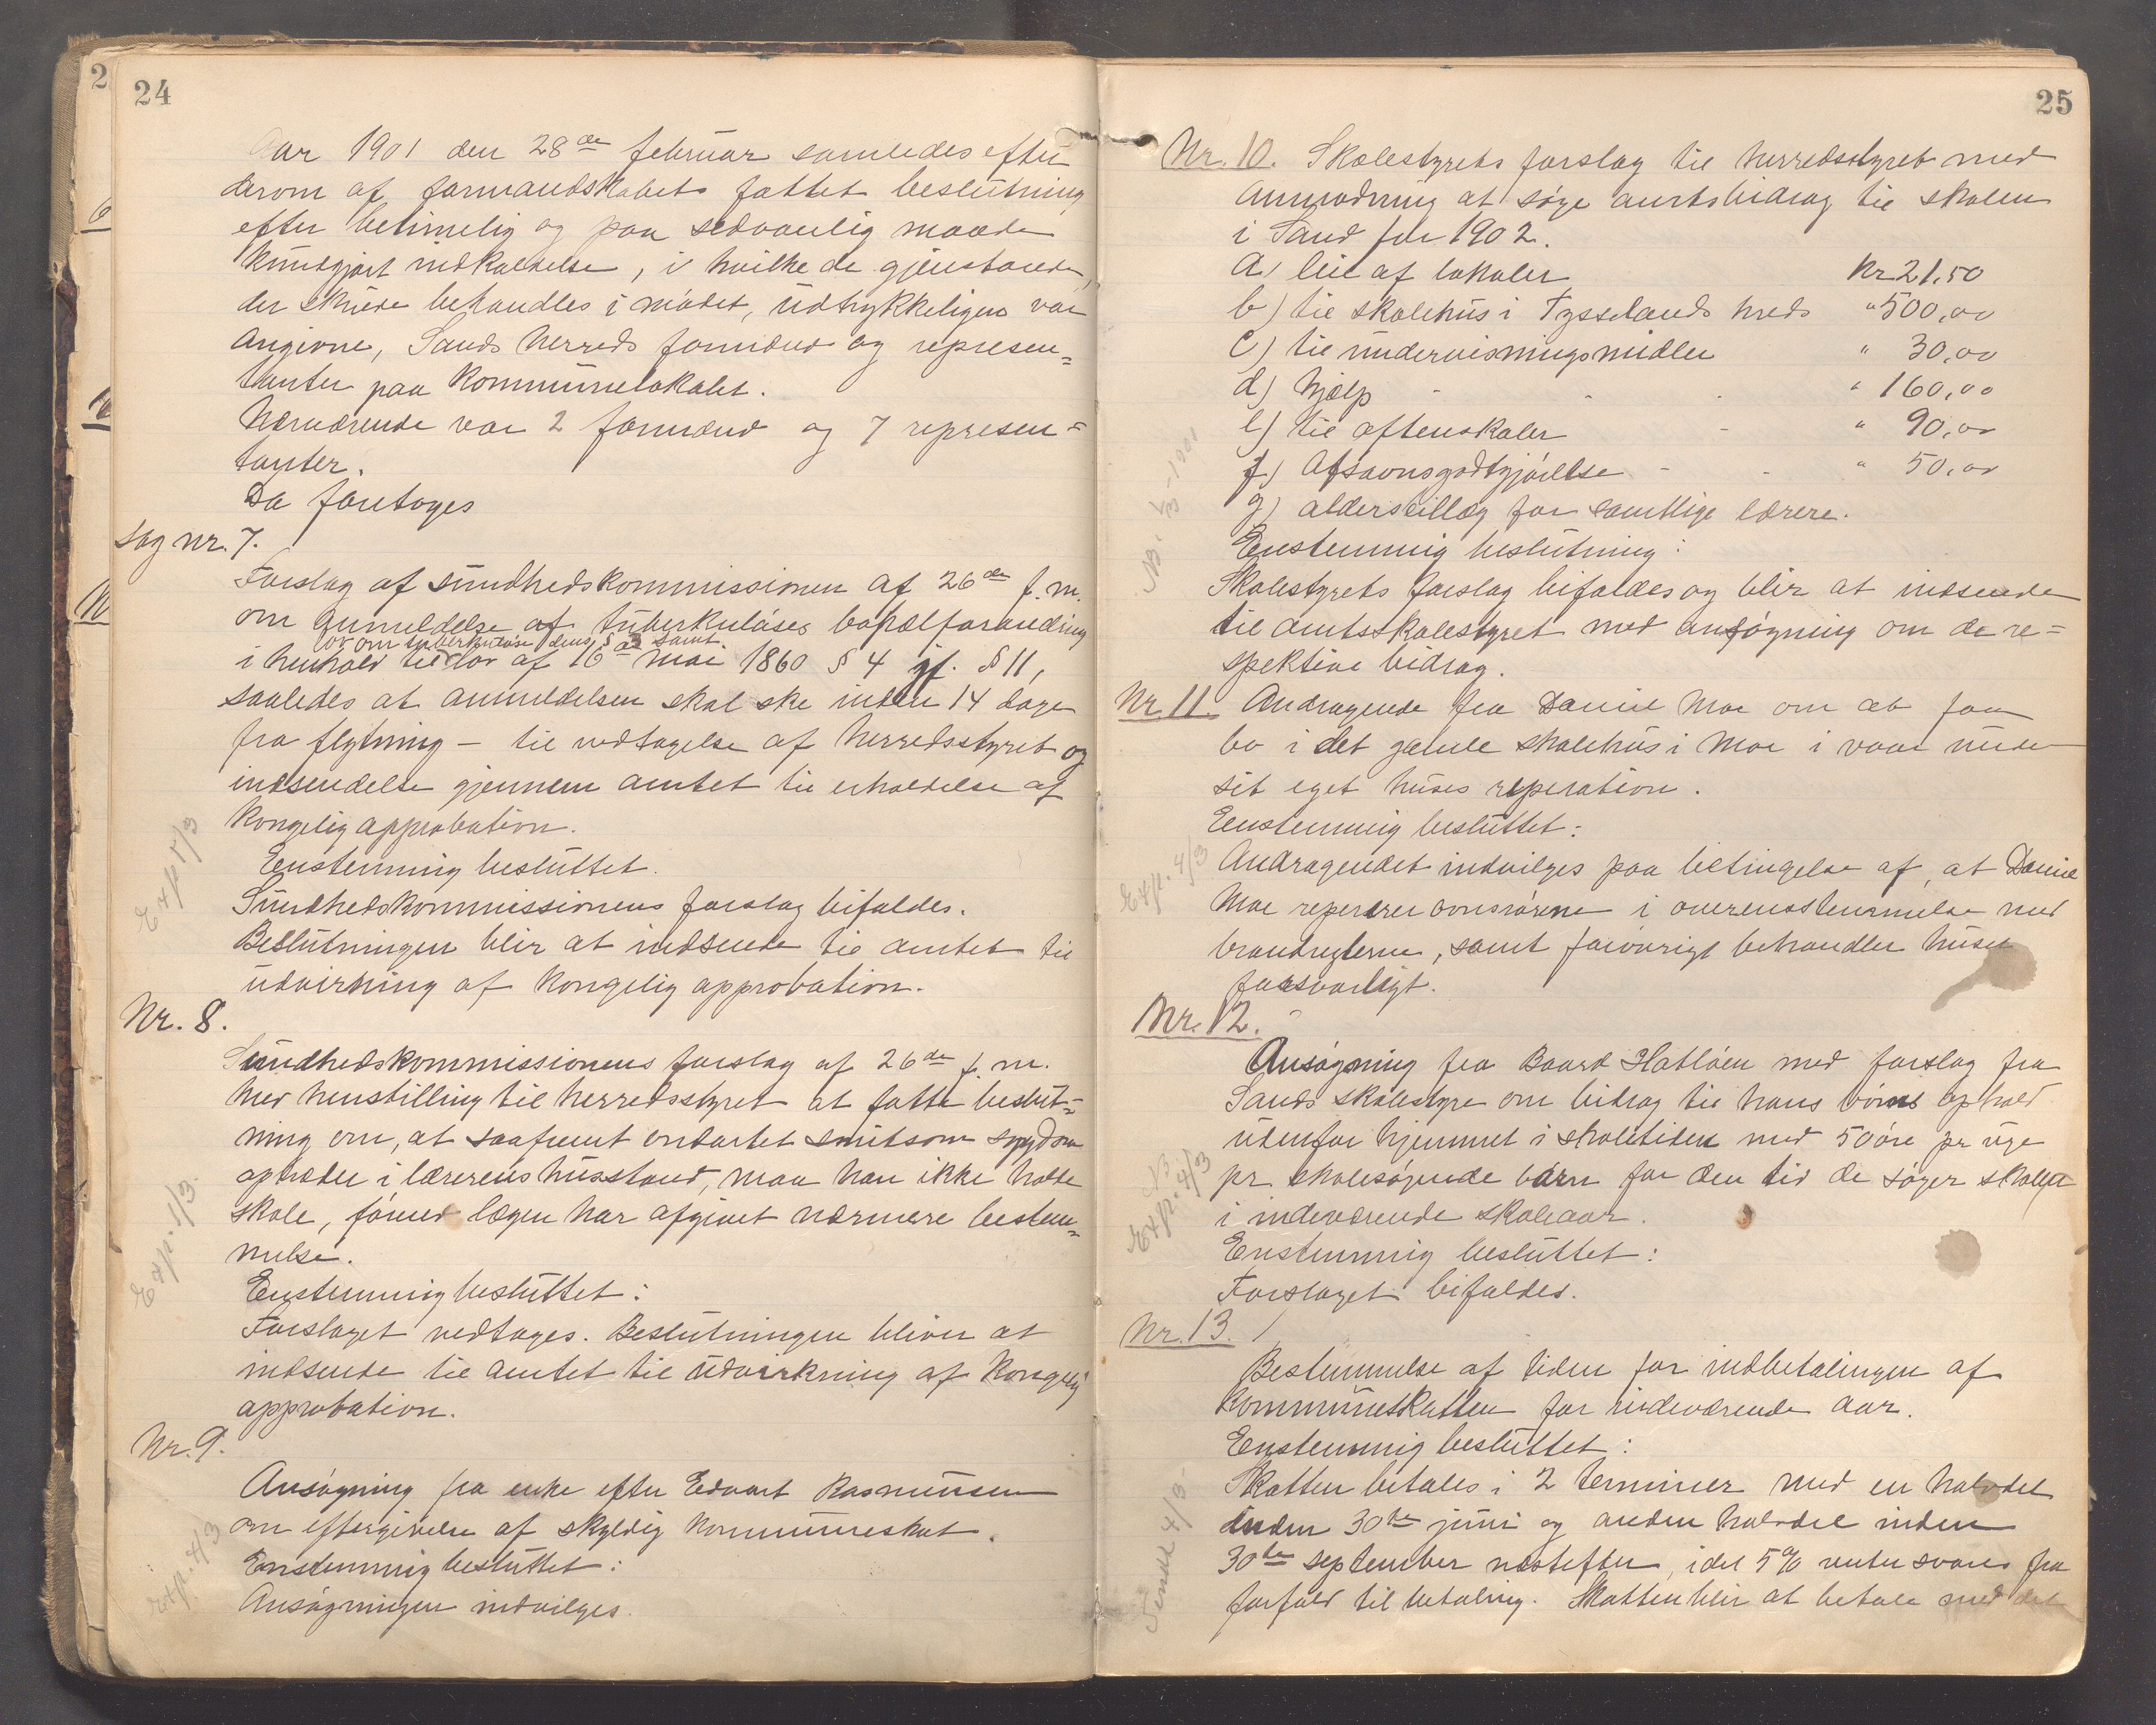 24
Aar 1901 den 28de februar samledes efter
derom af formandskabets fattet beslutning
efter betimelig og paa sedvanlig maade
kundgjort indkaldelse, i hvilke de gjenstande,
der skulde behandles i mødet, udtrykkeligen var
angivne, Sands herreds formænd og represen=
tanter paa kommunelokalet.
Nærværende var 2 formænd og 7 represen=
tanter.
Da foretoges
Sag nr. 7.
Forslag af sundhedskommissionen af 26de f. m.
om anmeldelse af tuberkuløses bopælforandring
lov om tuberkuløse dens § 3 samt
i henhold til lov af 16de mai 1860 § 4 jf. § 11,
saaledes at anmeldelsen skal ske inden 14 dage
fra flytning – til vedtagelse af herredsstyret og
indsendelse gjennem amtet til erholdelse af
kongelig approbation.
Enstemmig besluttet.
Sundhedskommissionens forslag bifaldes.
Beslutningen blir at indsende til amtet til
udvirkning af kongelig approbation.
Exp 1/3
Nr. 8.
Sundhedskommissionens forslag af 26de f. m.
med henstilling til herredsstyret at fatte beslut=
ning om, at saafremt ondartet smitsom sygdom
optræder i lærerens husstand, maa han ikke holde
skole, førend lægen har afgivet nærmere bestem=
melse.
Enstemmig besluttet:
Forslaget vedtages. Beslutningen bliver at
indsende til amtet til udvirkning af kongelig
approbation.
Exp. 1/3.
Nr. 9.
Ansøgning fra enke efter Edvart Rasmussen
om eftergivelse af skyldig kommuneskat.
Enstemmig besluttet:
Ansøgningen indvilges.
Exp. 4/3
25
Nr. 10. Skolestyrets forslag til herredsstyret med
anmodning at søge amtsbidrag til skolen
i Sand for 1902.
a) leie af lokaler kr 21.50
b) til skolehus i Tysselands kreds " 500,00
c) til undervisningsmidler " 30,00
d) hjælp - - - " 160,00
e) til aftenskoler - " 90,00
f) Afsavnsgodtgjørelse - - " 50,00
g) alderstillæg for samtlige lærere.
Enstemmig beslutning:
Skolestyrets forslag bifaldes og blir at indsende
til amtsskolestyret med ansøgning om de re=
spektive bidrag.
Nr. 11. Andragende fra Daniel Moe om at faa
bo i det gamle skolehus i Moe i vaar under
sit eget huses reperation.
Enstemmig besluttet:
Andragendet indvilges paa betingelse af, at Daniel
Moe reperer ovnsrørene i overensstemmelse med
brandreglerne, samt forøvrigt behandler huset
forsvarligt.
Exp. 4/3
Nr. 12.
Ansøgning fra Baard Hatløen med forslag fra
Sands skolestyre om bidrag til hans børns ophold
udenfor hjemmet i skoletiden med 50 øre pr uge
pr skolesøgende barn for den tid de søger skolen
i indeværende skoleaar.
Enstemmig besluttet:
Forslaget bifaldes.
Exp. 4/3
Nr. 13.
Bestemmelse af tiden for indbetalingen af
kommuneskatten for indeværende aar.
Enstemmig besluttet:
Skatten betales i 2 terminer med en halvdel
inden 30te juni og anden halvdel inden
30te september næstefter, idet 5 % renter svares fra
forfald til betaling. Skatten blir at betale med det